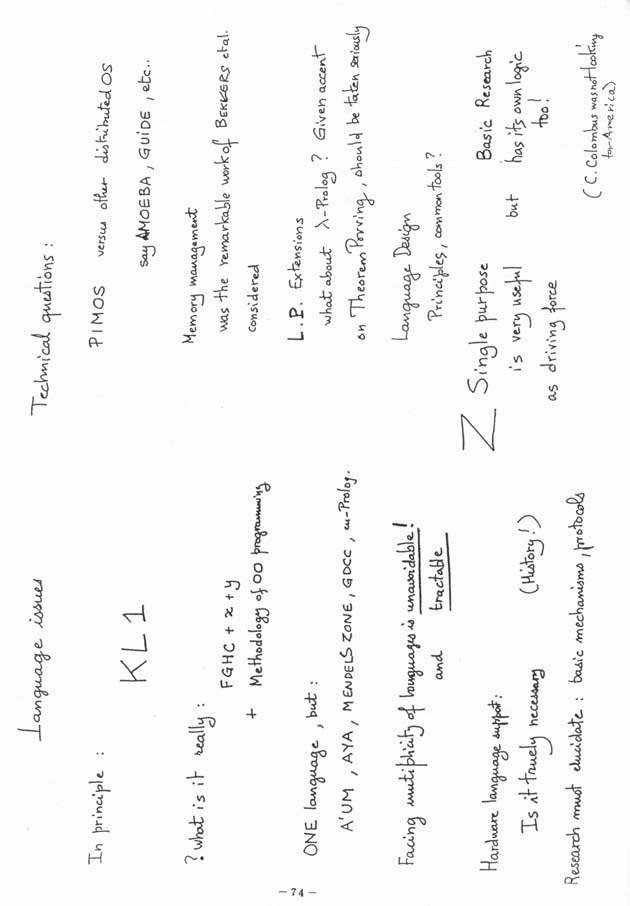 Language issues
In principle :
KL1
? what is it really :
FGHC + x + y
+ Methodology of OO programming
ONE language, but :
A'UM, AYA, MENDELS ZONE, GDCC, u-Prolog.
Facing mutiplicity of languages is unavoidable!
and tractable
Hardware language support:
Is it truely necessary (History!)
Research must elucidate : basic mechanisms, protocols
Technical questions :
PIMOS versus other distributed OS
say AMOEBA, GUIDE, etc..
Memory management
was the remarkable work of BEKKERS et al.
considered
L.P. Extensions
what about λ-Prolog? Given accent
on Theorem Porving, should be taken seriously
Language Design
Principles, common tools?
Z Single purpose but Basic Research
is very useful has its own logic
as driving force too!
(C. Colombus was not lookin'
for America)
-74-